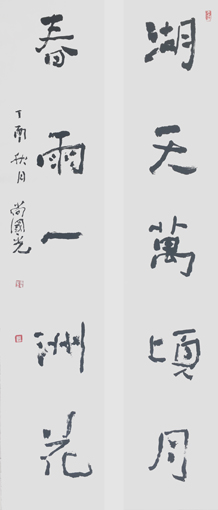 湖天萬頃月
春雨一洲花
丁酉秋月 尚國光